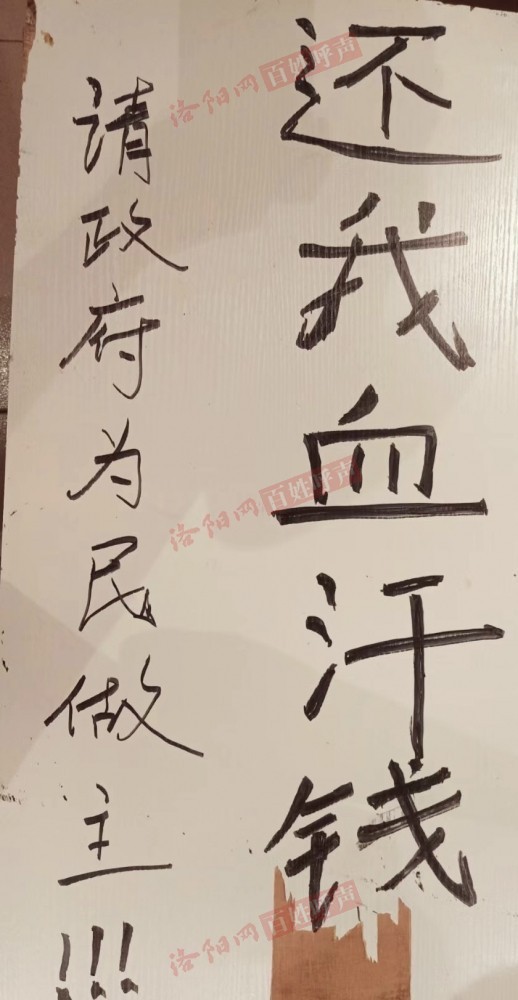 还我血汗钱
请政府为民做主!!!
洛阳网百姓呼声
洛阳网百姓呼声
洛阳网百姓呼声